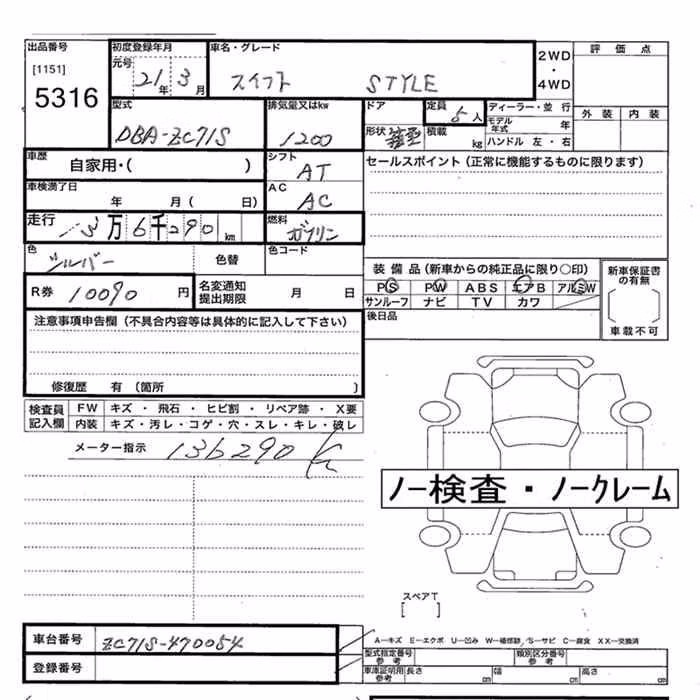 出品番号 初度登録年月 車名・グレード 2WD・4WD 評価点
[1151] 元号
5316 21年 3月 スイフト STYLE
型式 排気量又はkw ドア 定員 5人 ディーラー・並行 外装 内装
DBA-ZC71S 1200 形状 積載 kg モデル年式 年
ハンドル 左・右
車歴 自家用・( ) シフト AT セールスポイント (正常に機能するものに限ります)
車検満了日 年 月( 日) AC AC
走行 13万6千290km 燃料 ガソリン
色 シルバー 色替 色コード
装備品 (新車からの純正品に限り○印) 新車保証書の有無
PS PW ABS エアB アルミW
サンルーフ ナビ TV カワ
R券 10090円 名変通知提出期限 月 日 後日品 車載不可
注意事項申告欄 (不具合内容等は具体的に記入して下さい)
修復歴 有 (箇所 )
検査員記入欄 FW キズ・飛石・ヒビ割・リペア跡・X要
内装 キズ・汚レ・コゲ・穴・スレ・キレ・破レ
メーター指示 136290
ノー検査・ノークレーム
スペアT
[ ]
車台番号 ZC71S-470054
A-キズ E-エクボ U-凹み W-補修跡 S-サビ C-腐食 XX-交換済
登録番号
型式指定番号 参考 類別区分番号 参考
車庫証明用 参考 長さ cm 幅 cm 高さ cm